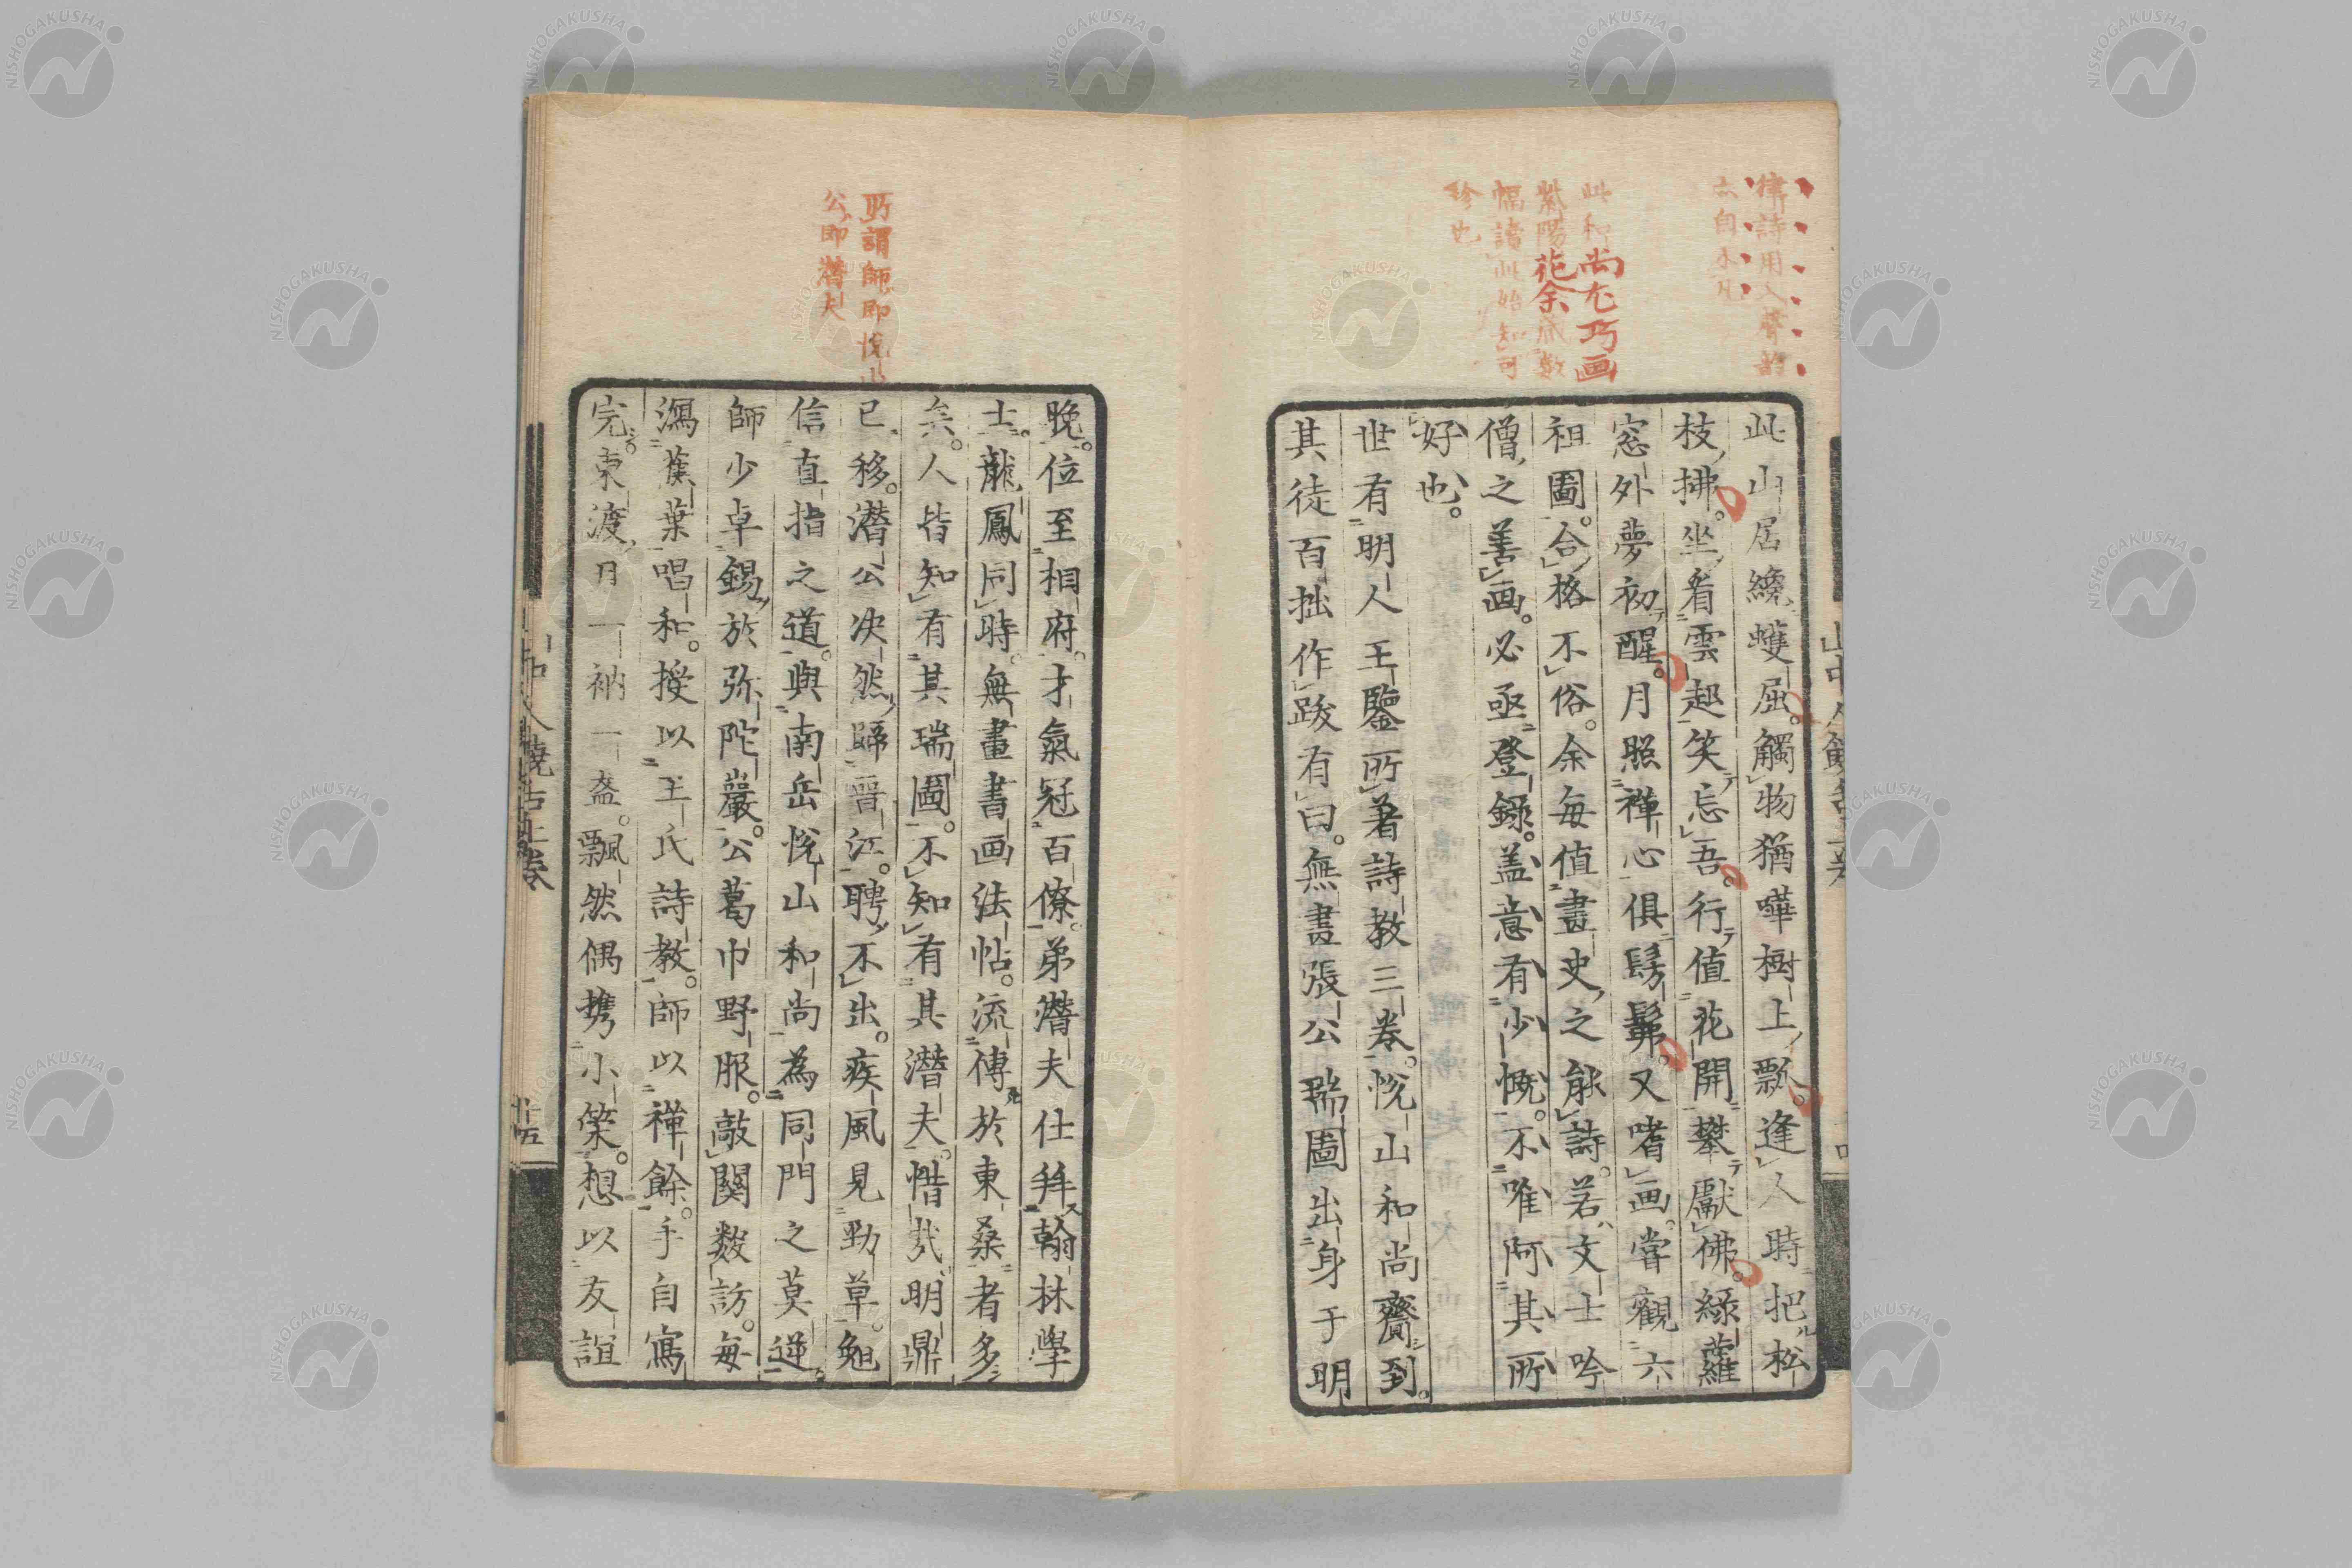 律詩用入聲韵
此和尚尤巧画
紫陽花余藏數
幅讀此始知可
珍也
此山居纔蠖屈。觸物猶嘩樹上飄。逢人時把松
枝拂。坐看雲起笑忘吾。行值花開攀獻佛。綠蘿
窓外夢初醒。月照禪心俱髣髴。又嗜画。嘗觀六
祖圖。合格不俗。余每值畫史之能詩。若文士吟
僧之善画。必亟登錄。盖意有少慨。不唯阿其所
好也。
世有明人王鑒所著詩教三卷。悅山和尚齎到。
其徒百拙作跋有曰。無晝張公瑞圖出身于明
所謂師即悅山
公即潛夫
晚。位至相府。才氣冠百僚。弟潛夫仕拜翰林學
士。龍鳳同時。無晝書画法帖。流傳於東桑者多
矣。人皆知有其瑞圖。不知有其潛夫。惜哉。明鼎
已移。潛公决然歸晋江。聘不出。疾風見勁草。勉
信直指之道。與南岳悅山和尚為同門之莫逆。
師少卓錫於弥陀巖。公葛巾野服。敲關數訪。每
瀉蕉葉唱和。授以王氏詩教。師以禪餘。手自寫
完。東渡日一衲一盔。飄然偶携小篋。想以友誼
山中人饒舌上卷
十五